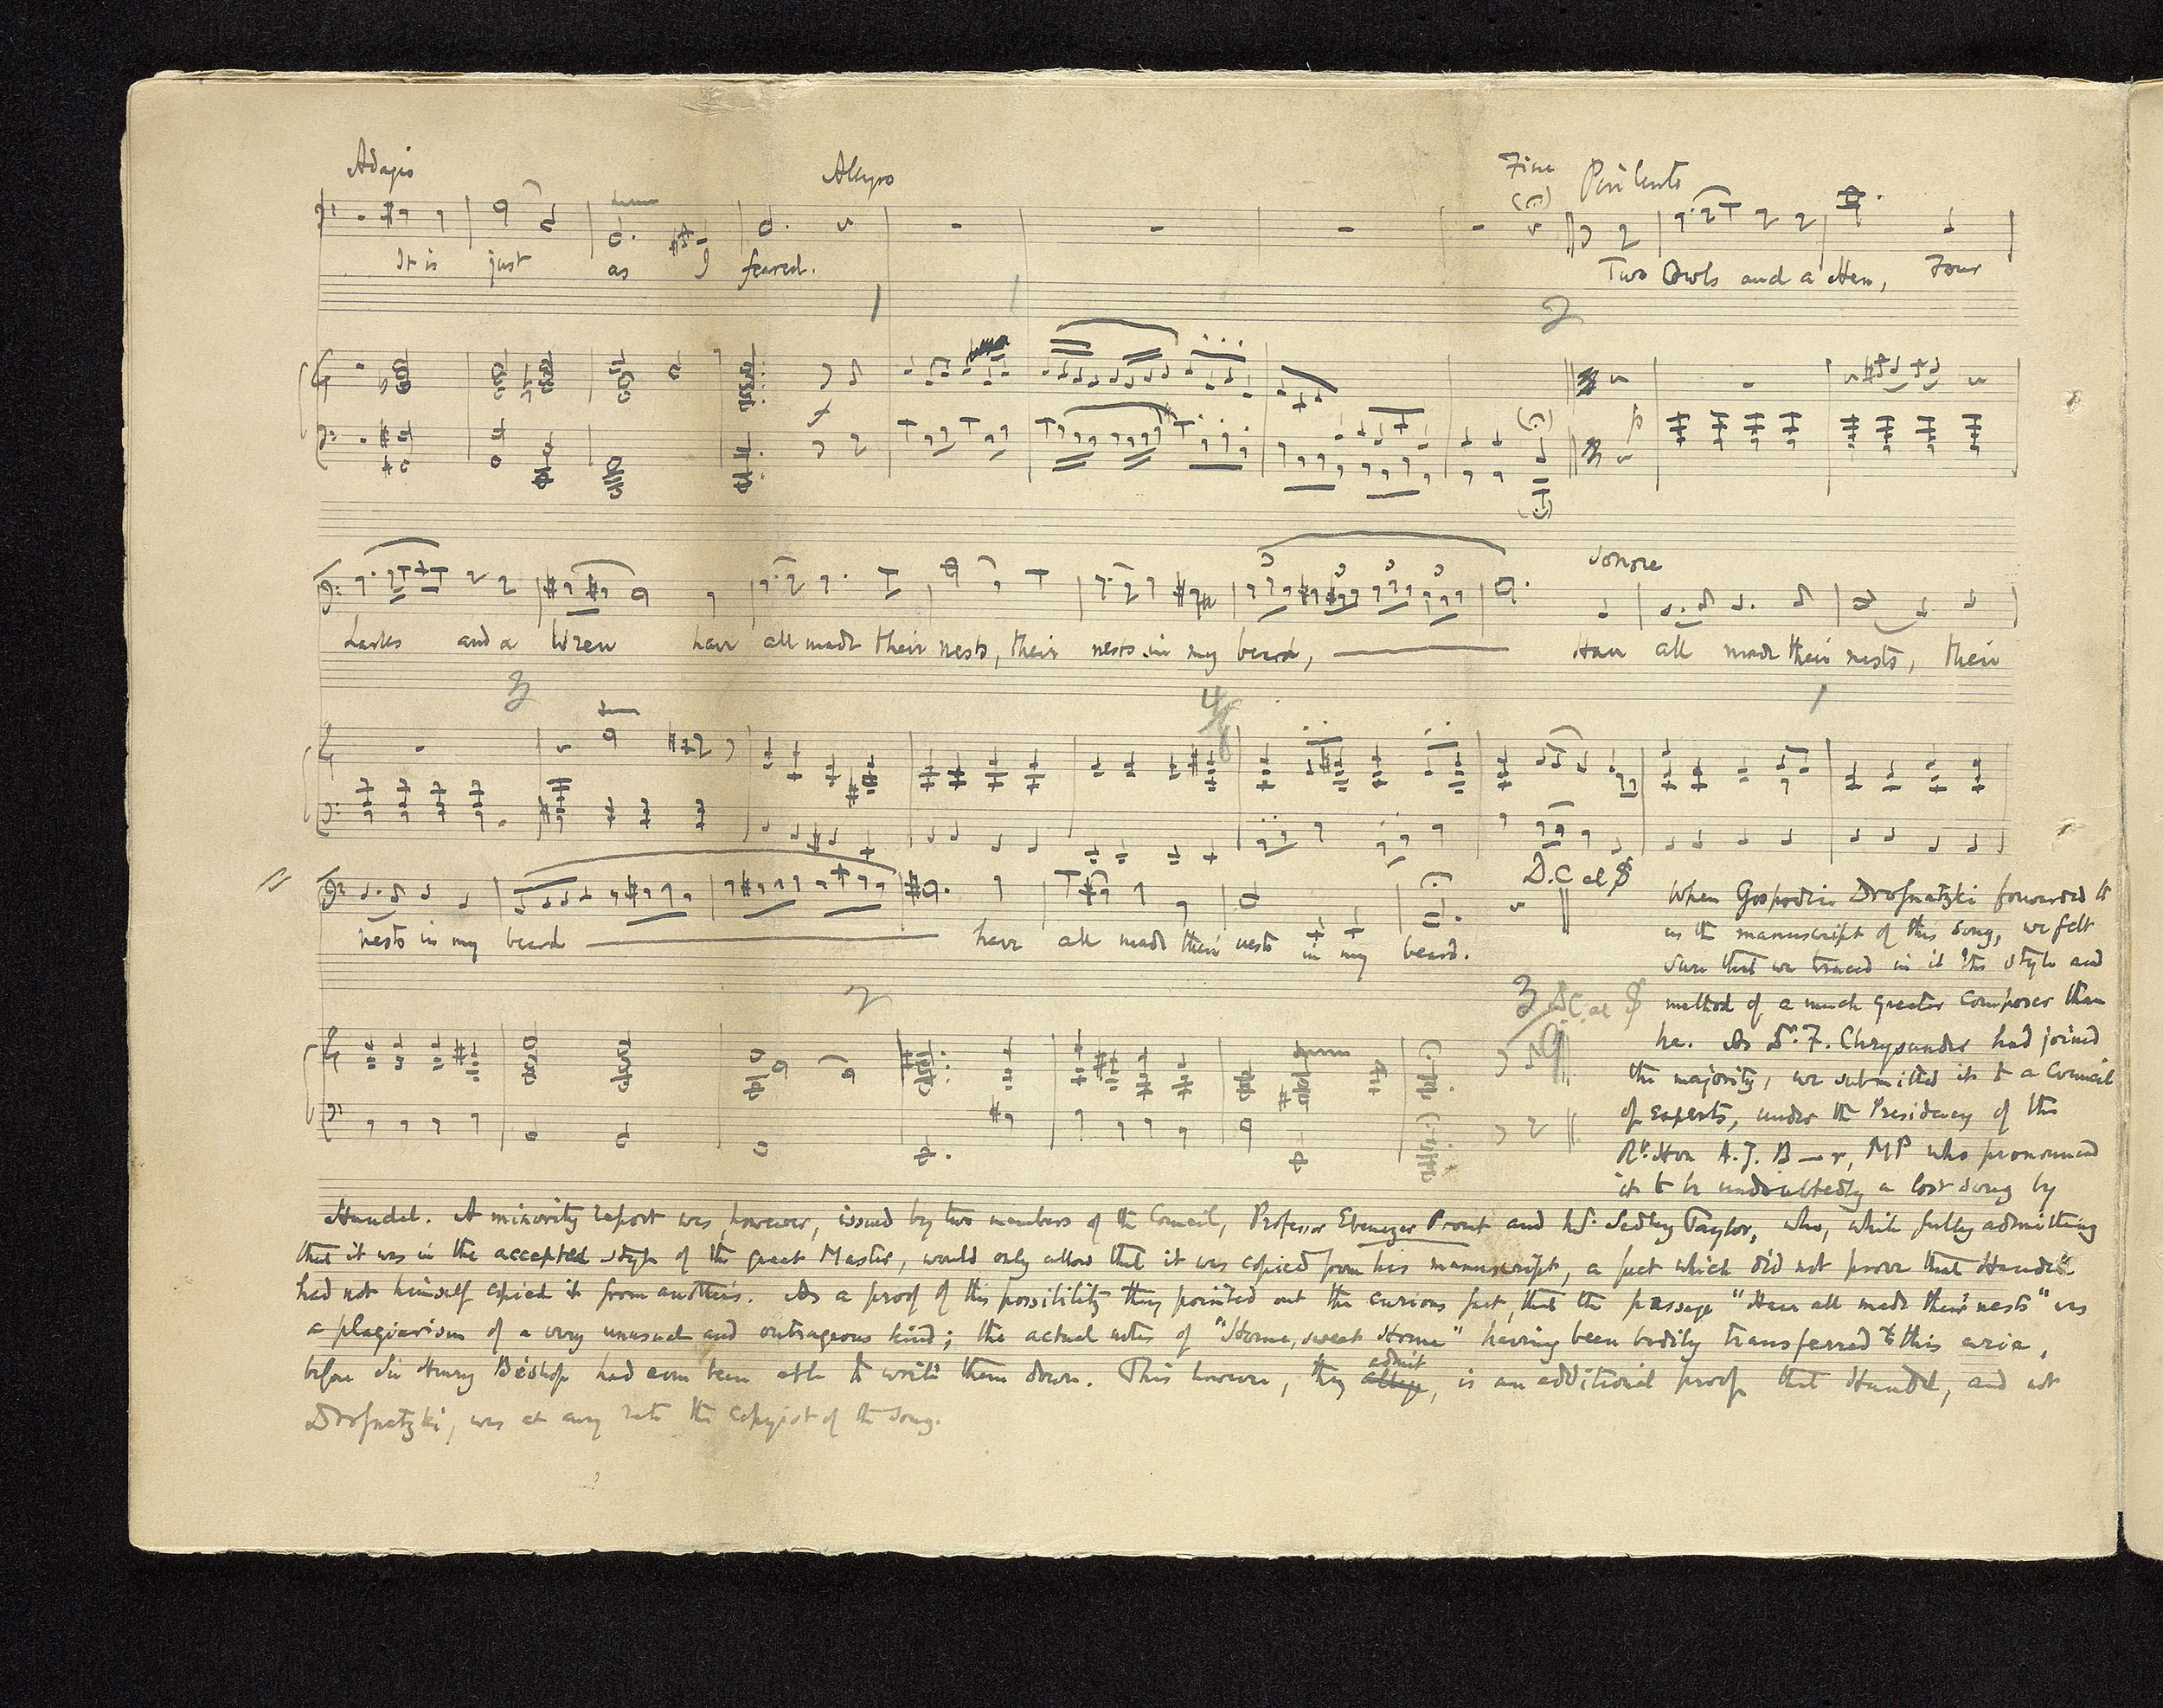 Adagio Allegro Fine Più lento
It is just as I feared. Two Owls and a Hen, Four
1 1 2
p
sonore
Larks and a Wren have all made their nests, their nests in my beard, Have all made their nests, their
3 4 1
D.C al 𝄋
nests in my beard have all made their nests in my beard.
2 3 D.C. al 𝄋
9
When Gospodin Drofnatzki forwarded to
us the manuscript of this song, we felt
sure that we traced in it the style and
method of a much greater composer than
he. As Dr. F. Chrysander had joined
the majority, we submitted it to a Council
of experts, under the Presidency of the
Rt. Hon A. J. B—r, MP who pronounced
it to be undoubtedly a lost song by
Handel. A minority report was, however, issued by two members of the Council, Professor Ebenezer Prout and Mr. Sedley Taylor, who, while fully admitting
that it was in the accepted style of the great Master, would only allow that it was copied from his manuscript, a fact which did not prove that Handel
had not himself copied it from another's. As a proof of this possibility they pointed out the curious fact, that the passage "Have all made their nests" was
a plagiarism of a very unusual and outrageous kind; the actual notes of "Home, sweet Home" having been bodily transferred to this aria,
before Sir Henry Bishop had even been able to write them down. This however, they allege admit, is an additional proof that Handel, and not
Drofnatzki, was at any rate the copyist of the song.